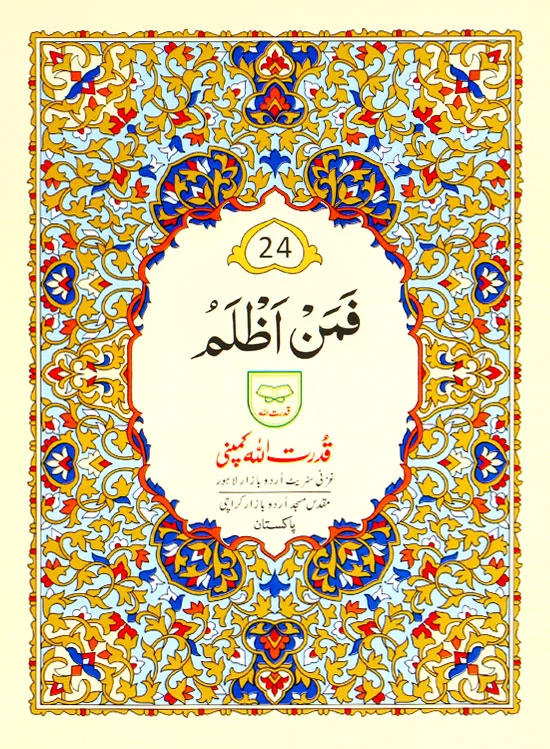 24
فَمَنْ اَظْلَمُ
قدرت اللہ
قُدرت اللہ کمپنی
غزنی سٹریٹ اُردو بازار لاہور
مقدس مسجد اُردو بازار کراچی
پاکستان